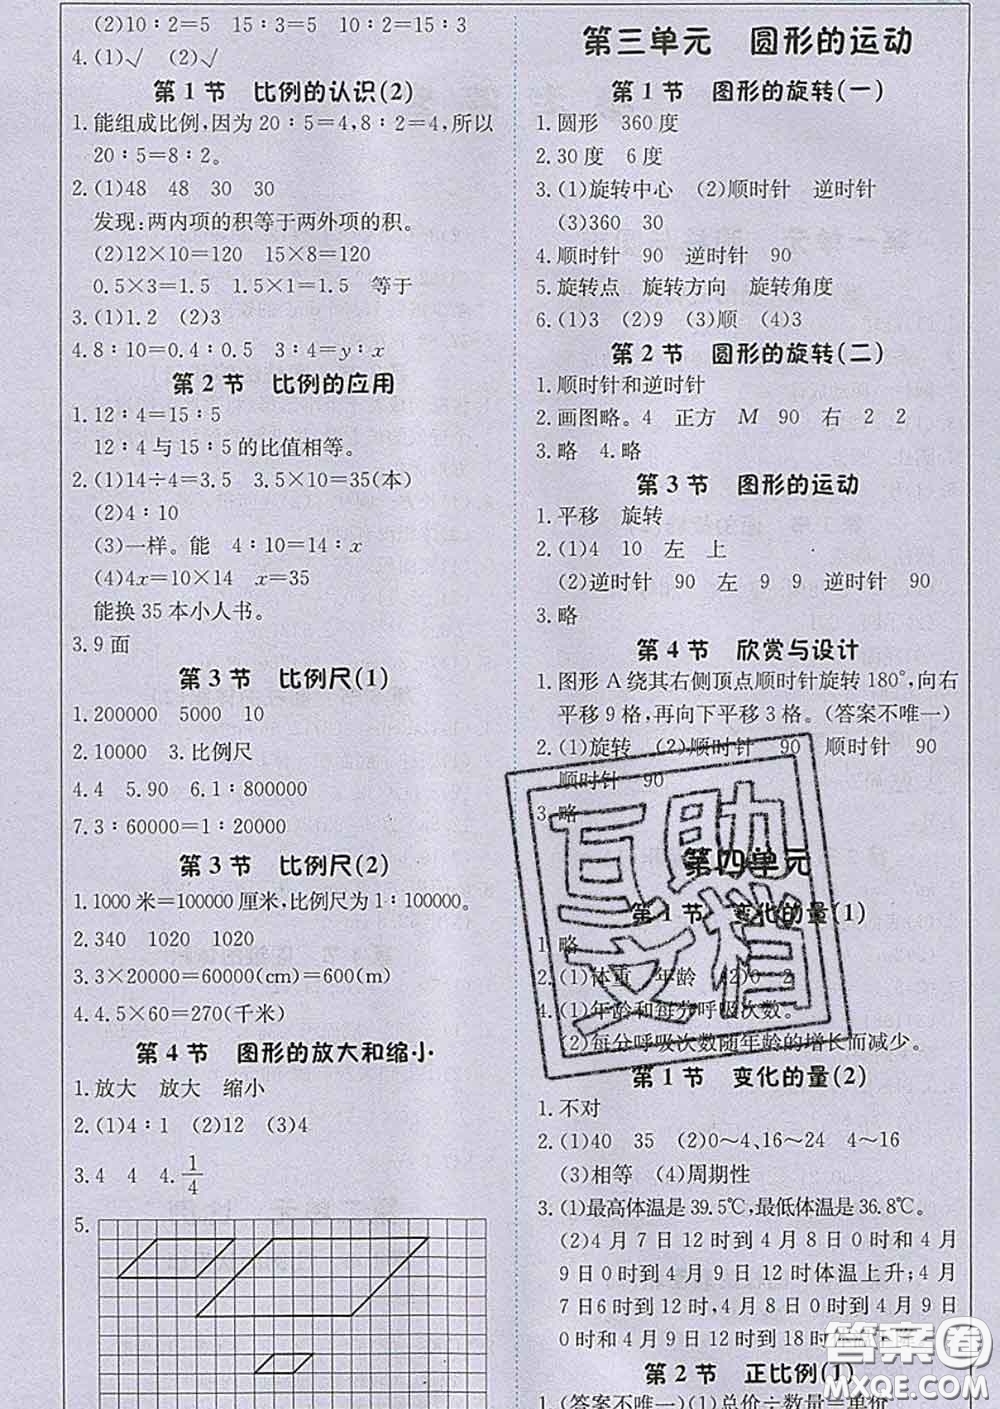 (2)10∶2=5　15∶3=5　10∶2=15∶3
4.(1)√　(2)√
第1节　比例的认识(2)
1.能组成比例,因为20∶5=4,8∶2=4,所以
20∶5=8∶2。
2.(1)48　48　30　30
发现:两内项的积等于两外项的积。
(2)12×10=120　15×8=120
0.5×3=1.5　1.5×1=1.5　等于
3.(1)1.2　(2)3
4.8∶10=0.4∶0.5　3∶4=y∶x
第2节　比例的应用
1.12∶4=15∶5
12∶4与15∶5的比值相等。
2.(1)14÷4=3.5　3.5×10=35(本)
(2)4∶10
(3)一样。能　4∶10=14∶x
(4)4x=10×14　x=35
能换35本小人书。
3.9面
第3节　比例尺(1)
1.200000　5000　10
2.10000　3.比例尺
4.4　5.90　6.1∶800000
7.3∶60000=1∶20000
第3节　比例尺(2)
1.1000米=100000厘米,比例尺为1∶100000。
2.340　1020　1020
3.3×20000=60000(cm)=600(m)
4.4.5×60=270(千米)
第4节　图形的放大和缩小
1.放大　放大　缩小
2.(1)4∶1　(2)12　(3)4
3.4　4　4.1/4
5.
第三单元　图形的运动
第1节　图形的旋转(一)
1.圆形　360度
2.30度　6度
3.(1)旋转中心　(2)顺时针　逆时针
(3)360　30
4.顺时针　90　逆时针　90
5.旋转点　旋转方向　旋转角度
6.(1)3　(2)9　(3)顺　(4)3
第2节　图形的旋转(二)
1.顺时针和逆时针
2.画图略。4　正方　M　90　右　2　2
3.略　4.略
第3节　图形的运动
1.平移　旋转
2.(1)4　10　左　上
(2)逆时针　90　左　9　9　逆时针　90
3.略
第4节　欣赏与设计
1.图形A绕其右侧顶点顺时针旋转180°,向右
平移9格,再向下平移3格。(答案不唯一)
2.(1)旋转　(2)顺时针　90　顺时针　90
顺时针　90
3.略
第四单元
第1节　变化的量(1)
1.略
2.(1)体重　年龄　(2)0　2
4.(1)年龄和每分呼吸次数。
(2)每分呼吸次数随年龄的增长而减少。
第1节　变化的量(2)
1.不对
2.(1)40　35　(2)0～4,16～24　4～16
(3)相等　(4)周期性
3.(1)最高体温是39.5℃,最低体温是36.8℃。
(2)4月7日12时到4月8日0时和4月
9日0时到4月9日12时体温上升;4月
7日6时到12时,4月8日0时到4月9日
0时和4月9日12时到18时
第2节　正比例(1)
1.(答案不唯一)(1)总价÷数量=单价
互助文档
答案圈
MXQE.COM